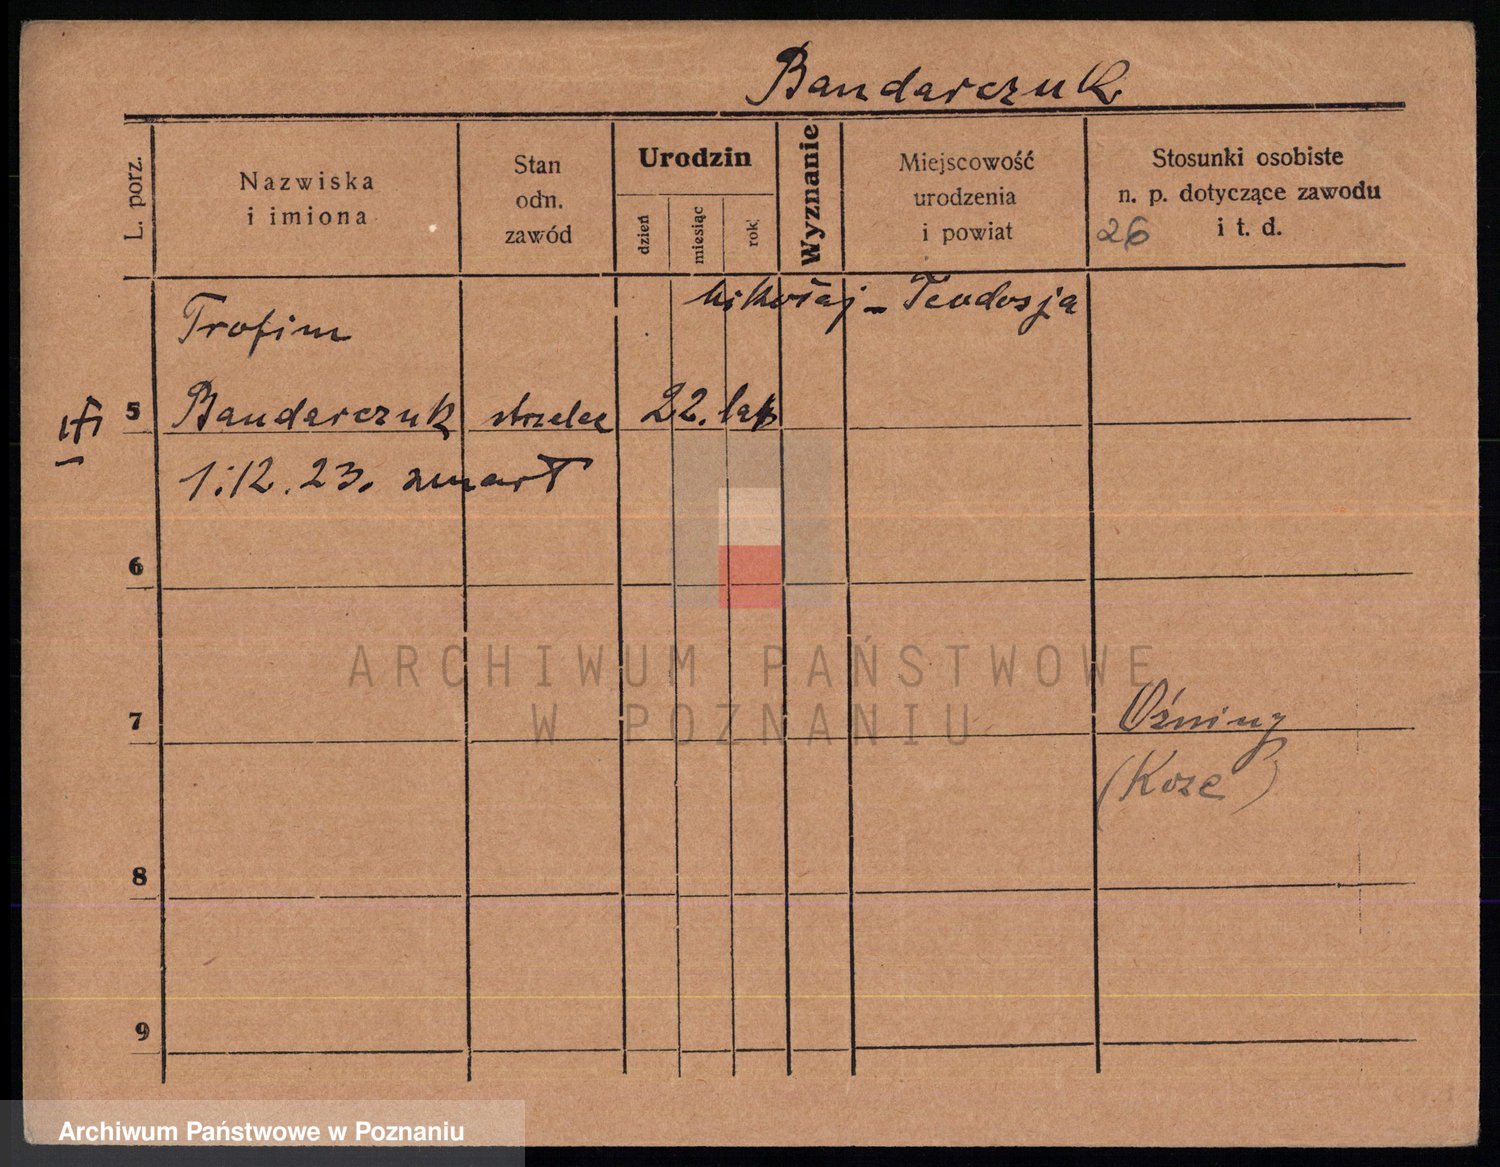 Bandarczuk
L. porz.
Nazwiska
i imiona
Stan
odn.
zawód
Urodzin
dzień
miesiąc
rok
Wyznanie
Miejscowość
urodzenia
i powiat
Stosunki osobiste
n. p. dotyczące zawodu
i t. d.
26
Mikołaj - Teodosja
Trofim
5 Bandarczuk strzelec 22. lat
1.12.23. zmarł
6
ARCHIWUM PAŃSTWOWE
W POZNANIU
7
(Koze)
8
9
Archiwum Państwowe w Poznaniu